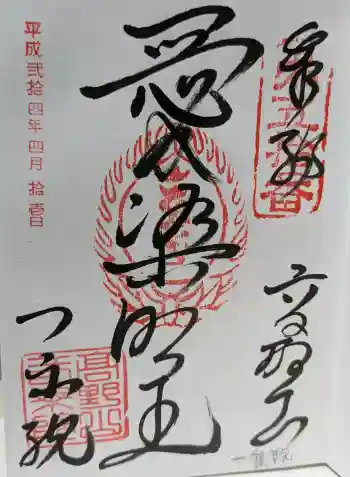 奉拝
高野山
愛染明王
一乗院
平成弐拾四年四月拾壱日
高野山
一乗院